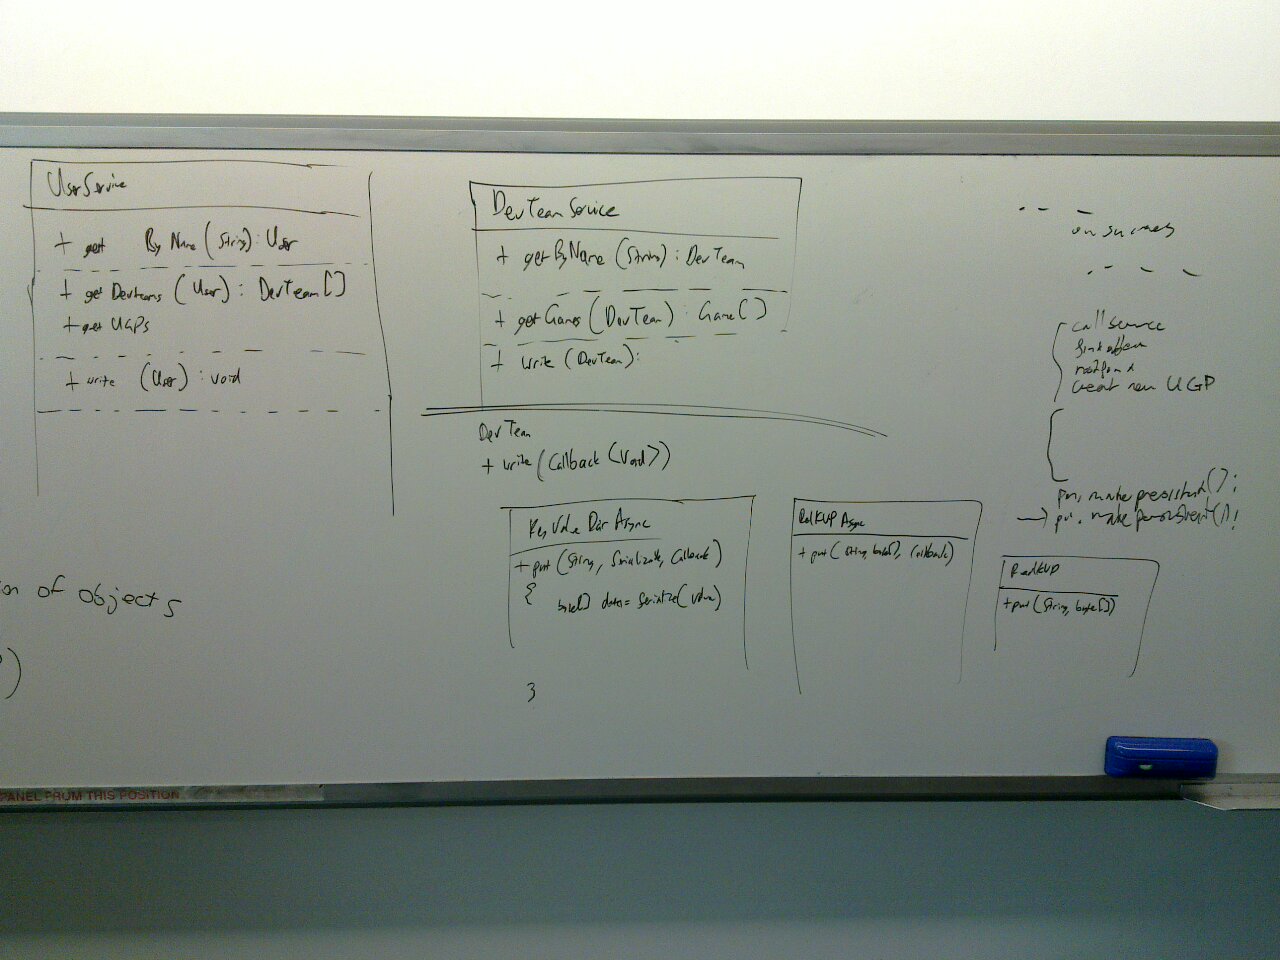 UserService
+ get By Name (String): User
+ get Devteams (User): DevTeam[]
+ get UGPs
+ write (User): void
DevTeamService
+ getByName (String): DevTeam
+ getGames (DevTeam): Game[]
+ write (DevTeam):
DevTeam
+ write (Callback <Void>)
Key Value Async
+ put (String, Serializable, Callback)
{
byte[] data = Serialize(value)
}
KVP Async
+ put (String, byte[], Callback)
KVP
+ put (String, byte[])
on success
call service
creat new UGP
on of objects
)
PANEL FROM THIS POSITION